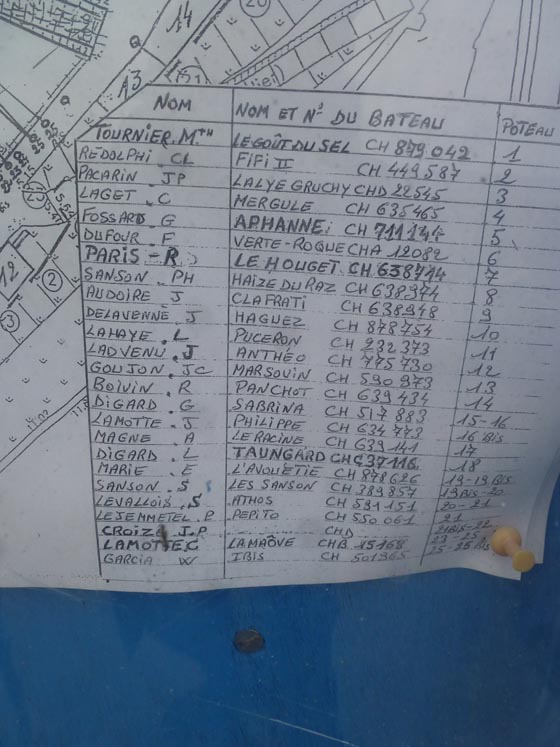 20
14
13
12
2
3
NOM NOM ET N° DU BATEAU POTEAU
TOURNIER.M LE GOÛT DU SEL CH 879 042 1
REDOLPHI CL FIFI II CH 449 587 2
PACARIN JP LALYE GRUCHY CHD 22545 3
LAGET . C MERGULE CH 635465 4
FOSSARD . G APHANNE CH 711144 5
DUFOUR . F VERTE-ROQUE CHA 12082 6
PARIS - R LE HOUGET CH 638744 7
SANSON . PH HAIZE DU RAZ CH 638974 8
AUDOIRE . J CLAFRATI CH 638948 9
DELAVENNE J HAGUEZ CH 878754 10
LAHAYE . L PUCERON CH 232 373 11
LADVENU . J ANTHEO CH 775 730 12
GOUJON . JC MARSOUIN CH 590 973 13
BOIVIN . R PANCHOT CH 639 434 14
DIGARD . G SABRINA CH 517 883 15-16
LAMOTTE . J PHILIPPE CH 634 773 16 Bis
MAGNE . A LE RACINE CH 639 141 17
DIGARD . L TAUNGARD CHC 37116 18
MARIE . E L'AVOUETIE CH 878626 19-19 Bis
SANSON . S LES SANSON CH 389857 19 Bis-20
LEVALLOIS . S ATHOS CH 591151 20-21
LEJEMMETEL . P PEPITO CH 550 061 21
CROIZÉ J.P CHD 21Bis-22
LAMOTTE C LAMAÔVE CHB 15168
GARCIA W IBIS CH 501365 25-25 Bis